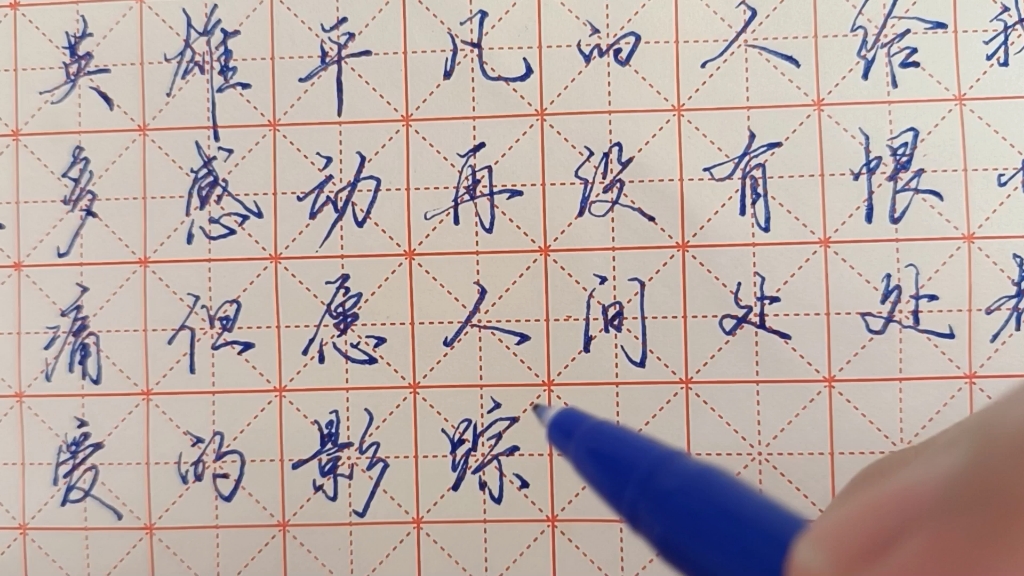 英雄平凡的人给我
多感动再没有恨
痛但愿人间处处都
爱的影踪